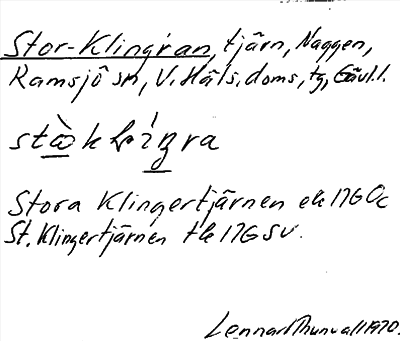 Stor-Klingran, tjärn, Naggen,
Ramsjö sn, V. Häls. doms, tg, Gävl.l.
Stora Klingertjärnen ek 17G0c
St. Klingertjärnen tk 17G SV.
Lennart Thunvall 1970.